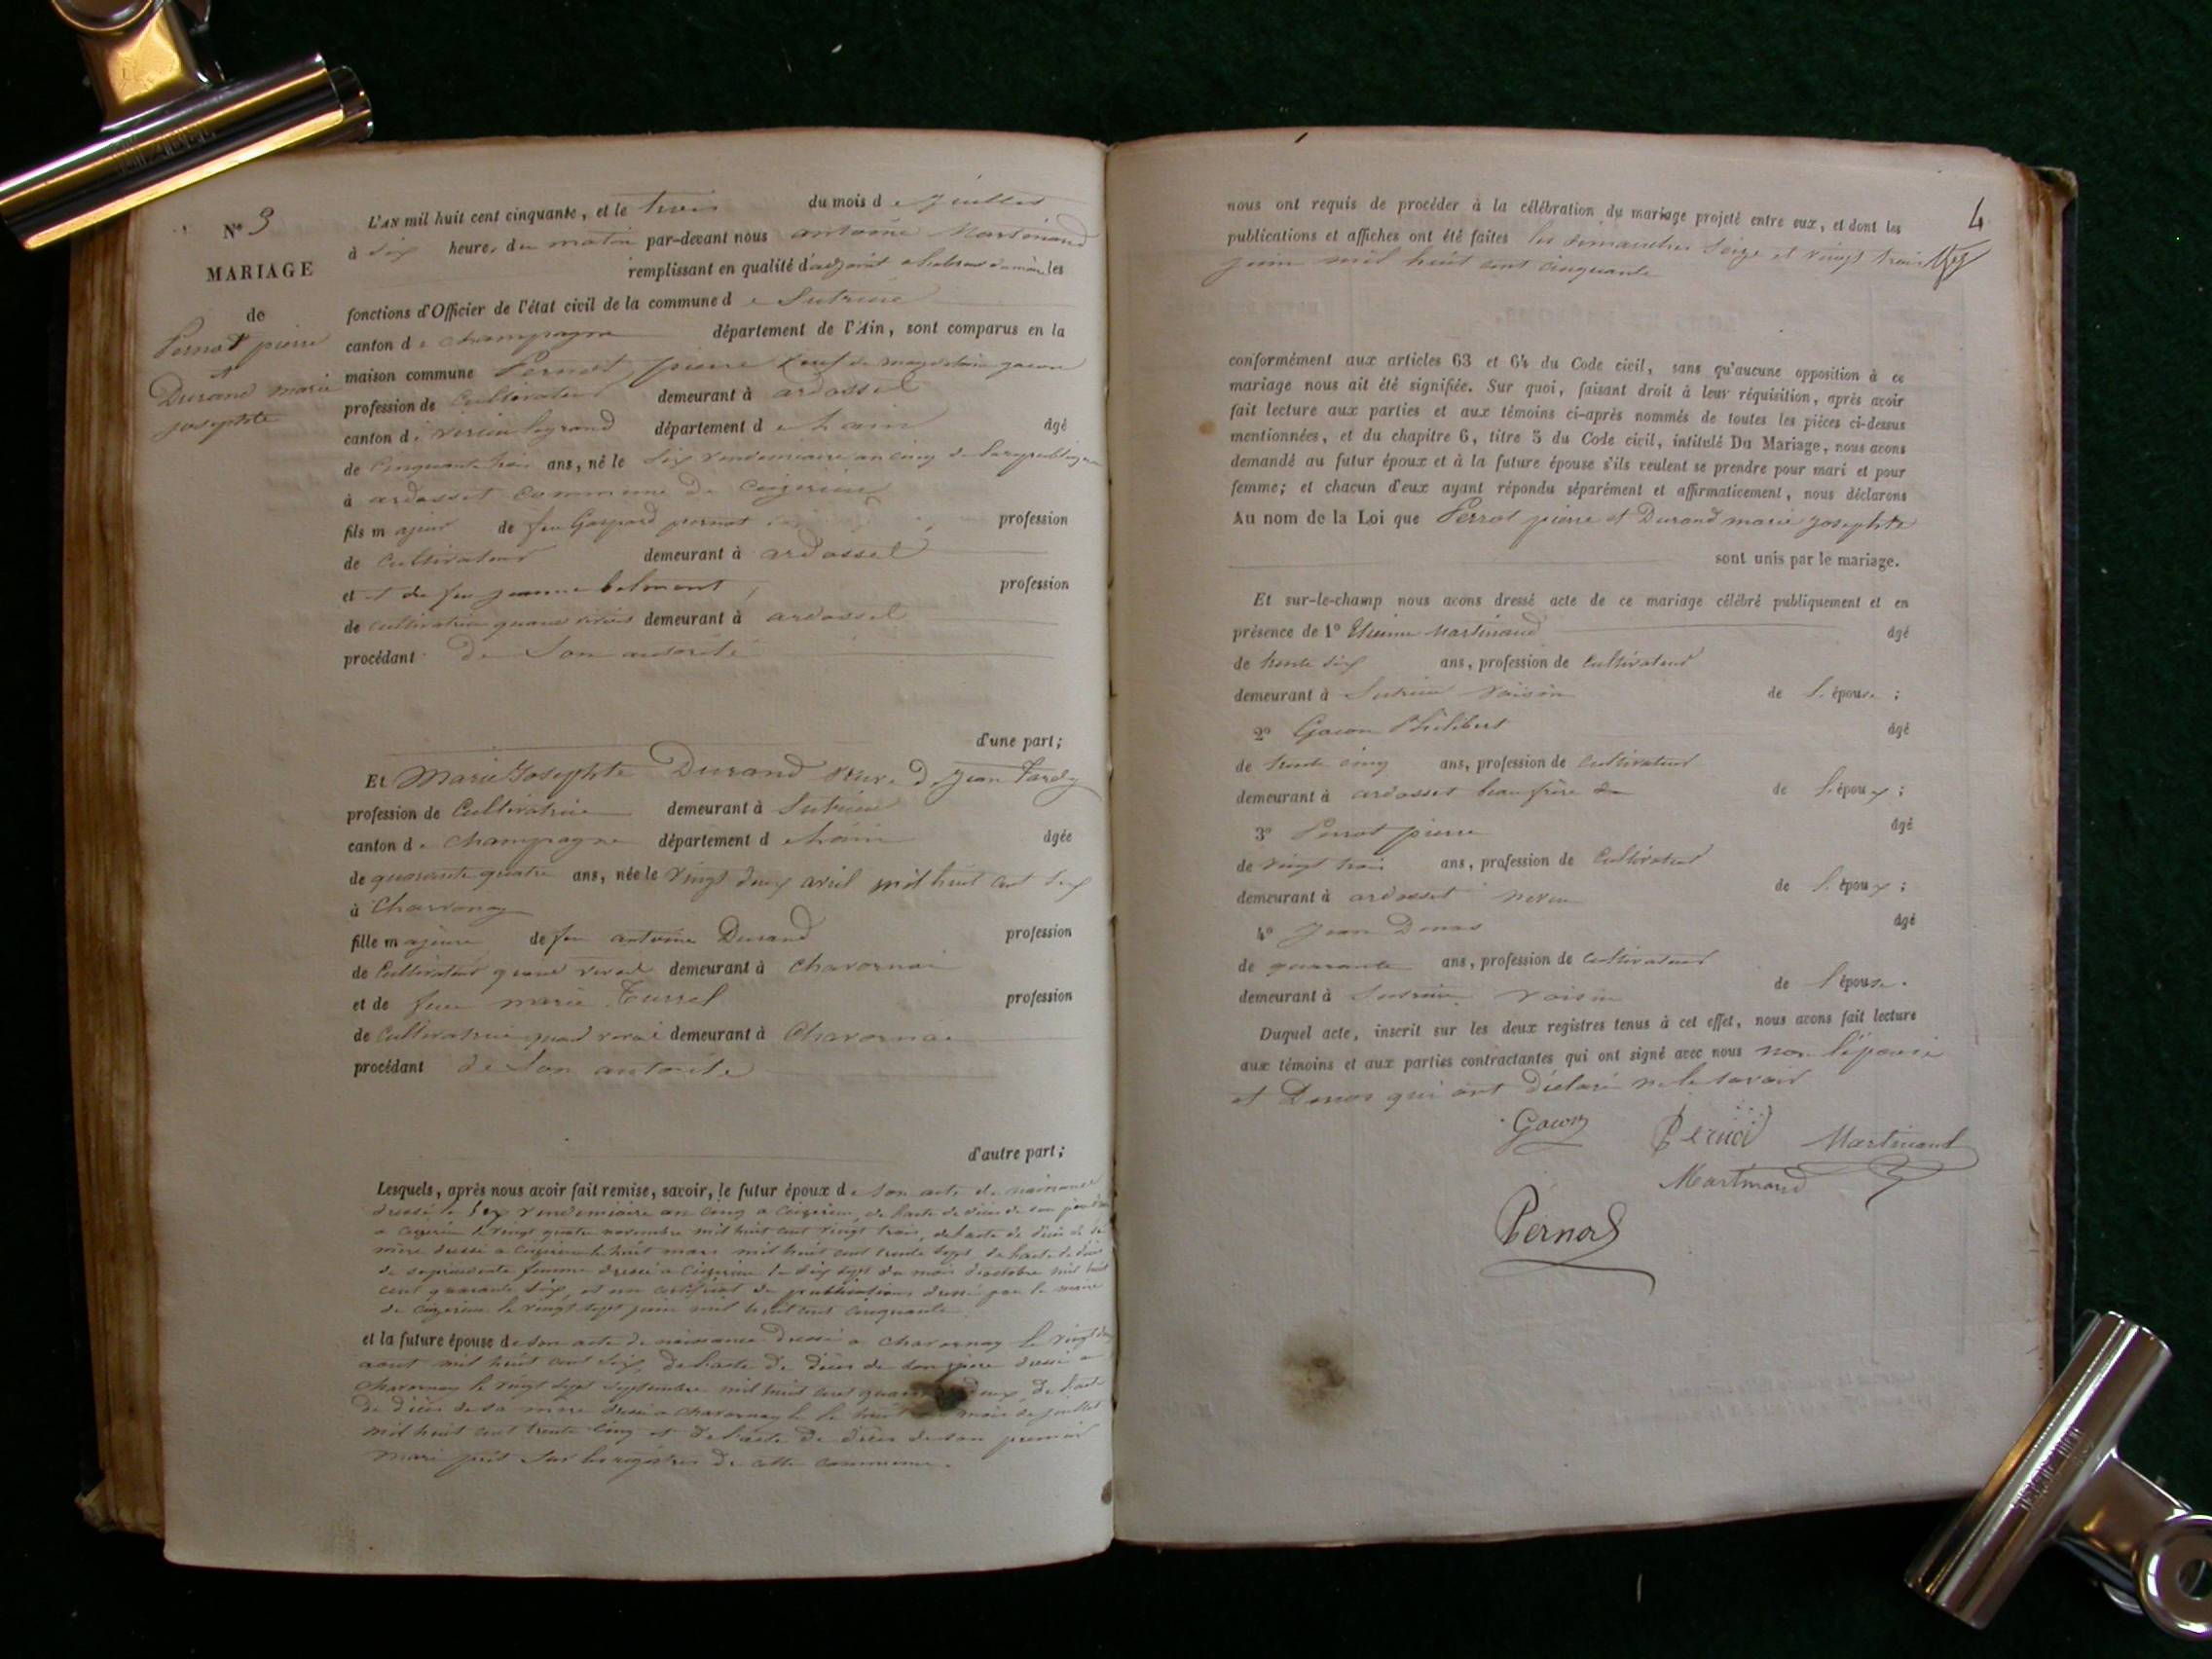 N° 3
MARIAGE
de
Pernot pierre
et
Durand marie
josephte
L'AN mil huit cent cinquante, et le trois du mois de juillet
à six heure, du matin par-devant nous antoine Martinand
remplissant en qualité d'adjoint les
fonctions d'Officier de l'état civil de la commune de Sutrieu
canton de champagne département de l'Ain, sont comparus en la
maison commune Pernot pierre
profession de Cultivateur demeurant à ardosset
canton de virieu legrand département de Lain âgé
de Cinquante trois ans, né le Six vendemiaire an cinq de la republique
à ardosset commune de Ceyzerieu
fils majeur de feu Gaspard pernot profession
de Cultivateur demeurant à ardosset
et et de feu jeanne belmont profession
de cultivatrice demeurant à ardosset
procédant de Son autorité
d'une part;
Et Marie Josephte Durand veuve de Jean Tardy
profession de Cultivatrice demeurant à Sutrieu
canton de Champagne département de Lain âgée
de quarante quatre ans, née le vingt deux avril mil huit cent Six
à Charvonay
fille majeure de feu antoine Durand profession
de Cultivateur quand vivai demeurant à Chavornai
et de feue marie profession
de Cultivatrice quand vivai demeurant à Chavornai
procédant de Son autorité
d'autre part;
Lesquels, après nous avoir fait remise, savoir, le futur époux de Son acte de naissance
dressé le Six vendemiaire an cinq a Ceyzerieu, de lacte de déces de son père
a Ceyzerieu le vingt quatre novembre mil huit cent vingt trois, de lacte de déces de sa
mère dressé a Ceyzerieu le huit mars mil huit cent trente Sept de lacte de déces
de sa précédente femme dressé a Ceyzerieu le dix Sept du mois doctobre mil huit
cent quarante Six, et un certificat de publications dressé par le maire
de Ceyzerieu le vingt Sept juin mil huit cent cinquante
et la future épouse de Son acte de naissance dressé a Chavornay le vingt
aout mil huit cent Six, de lacte de déces de Son père dressé a
Chavornay le vingt Sept Septembre mil huit cent deux, de lacte
de déces de sa mère dressé a Chavornay le huit mois de juillet
mil huit cent trente Cinq et de lacte de déces de Son premier
mari Sur les registres de cette commune.
4
nous ont requis de procéder à la célébration du mariage projeté entre eux, et dont les
publications et affiches ont été faites les dimanches Seize et vingt trois
juin mil huit cent cinquante
conformément aux articles 63 et 64 du Code civil, sans qu'aucune opposition à ce
mariage nous ait été signifiée. Sur quoi, faisant droit à leur réquisition, après avoir
fait lecture aux parties et aux témoins ci-après nommés de toutes les pièces ci-dessus
mentionnées, et du chapitre 6, titre 5 du Code civil, intitulé Du Mariage, nous avons
demandé au futur époux et à la future épouse s'ils veulent se prendre pour mari et pour
femme; et chacun d'eux ayant répondu séparément et affirmativement, nous déclarons
Au nom de la Loi que Perrot pierre et Durand marie josephte
sont unis par le mariage.
Et sur-le-champ nous avons dressé acte de ce mariage célébré publiquement et en
présence de 1° Etienne Martinand âgé
de trente Six ans, profession de Cultivateur
demeurant à Sutrieu voisin de l'épouse;
2° Gacon Philibert âgé
de trente cinq ans, profession de Cultivateur
demeurant à ardosset beau frère de l'époux;
3° Perrot pierre âgé
de vingt trois ans, profession de Cultivateur
demeurant à ardosset neveu de l'époux;
4° Jean âgé
de quarante ans, profession de Cultivateur
demeurant à Sutrieu voisin de l'épouse.
Duquel acte, inscrit sur les deux registres tenus à cet effet, nous avons fait lecture
aux témoins et aux parties contractantes qui ont signé avec nous non l'épouse
et qui ont déclaré ne le savoir
Gacon Martinand
Martinand
Pernot